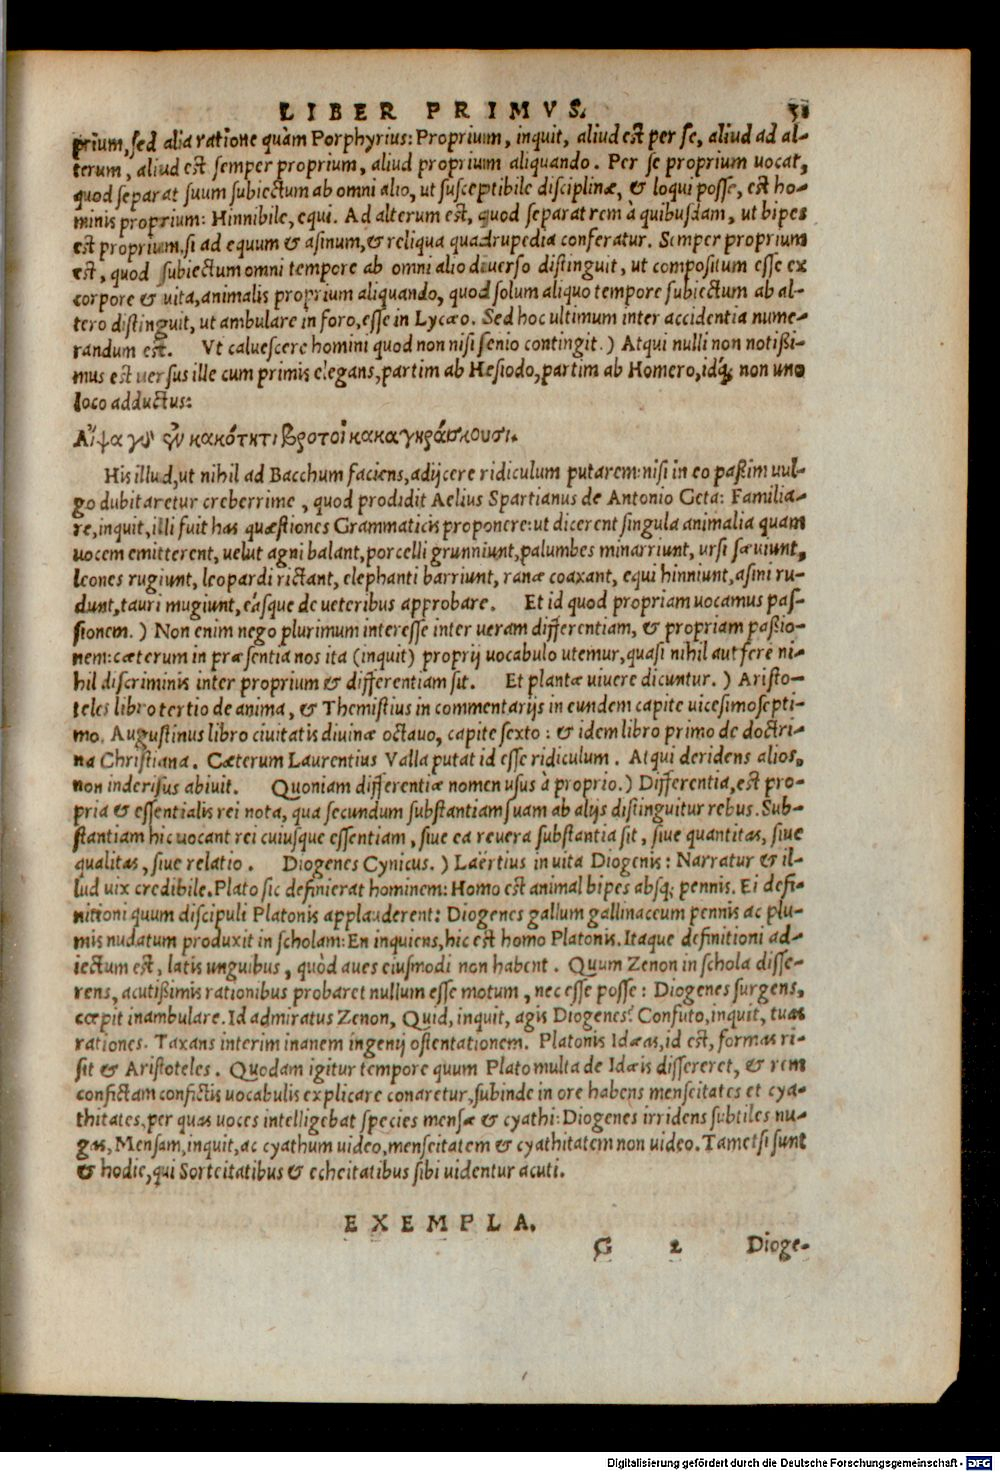 LIBER PRIMVS. 51
prium, sed alia ratione quàm Porphyrius: Proprium, inquit, aliud est per se, aliud ad al-
terum, aliud est semper proprium, aliud proprium aliquando. Per se proprium uocat,
quod separat suum subiectum ab omni alio, ut susceptibile disciplinæ, & loqui posse, est ho-
minis proprium: Hinnibile, equi. Ad alterum est, quod separat rem à quibusdam, ut bipes
est proprium, si ad equum & asinum, & reliqua quadrupedia conferatur. Semper proprium
est, quod subiectum omni tempore ab omni alio diuerso distinguit, ut compositum esse ex
corpore & uita, animalis proprium aliquando, quod solum aliquo tempore subiectum ab al-
tero distinguit, ut ambulare in foro, esse in Lycæo. Sed hoc ultimum inter accidentia nume-
randum est. Vt caluescere homini quod non nisi senio contingit.) Atqui nulli non notißi-
mus est uersus ille cum primis elegans, partim ab Hesiodo, partim ab Homero, idq́; non uno
loco adductus:
Αἶψα γὸ ἐν κακότητι βροτοὶ κακαγηράσκουσι.
His illud, ut nihil ad Bacchum faciens, adijcere ridiculum putarem: nisi in eo paßim uul-
go dubitaretur creberrime, quod prodidit Aelius Spartianus de Antonio Geta: Familia-
re, inquit, illi fuit has quæstiones Grammaticis proponere: ut dicerent singula animalia quam
uocem emitterent, uelut agni balant, porcelli grunniunt, palumbes minarriunt, ursi sæuiunt,
leones rugiunt, leopardi rictant, elephanti barriunt, ranæ coaxant, equi hinniunt, asini ru-
dunt, tauri mugiunt, eásque de ueteribus approbare. Et id quod propriam uocamus pas-
sionem.) Non enim nego plurimum interesse inter ueram differentiam, & propriam paßio-
nem: cæterum in præsentia nos ita (inquit) proprij uocabulo utemur, quasi nihil aut ferè ni-
hil discriminis inter proprium & differentiam sit. Et plantæ uiuere dicuntur.) Aristo-
teles libro tertio de anima, & Themistius in commentarijs in eundem capite uicesimosepti-
mo. Augustinus libro ciuitatis diuinæ octauo, capite sexto: & idem libro primo de doctri-
na Christiana. Cæterum Laurentius Valla putat id esse ridiculum. Atqui deridens alios,
non inderisus abiuit. Quoniam differentiæ nomen usus à proprio.) Differentia, est pro-
pria & essentialis rei nota, qua secundum substantiam suam ab alijs distinguitur rebus. Sub-
stantiam hic uocant rei cuiusque essentiam, siue ea reuera substantia sit, siue quantitas, siue
qualitas, siue relatio. Diogenes Cynicus.) Laërtius in uita Diogenis: Narratur & il-
lud uix credibile. Plato sic definierat hominem: Homo est animal bipes absq; pennis. Ei defi-
nitioni quum discipuli Platonis applauderent: Diogenes gallum gallinaceum pennis ac plu-
mis nudatum produxit in scholam: En inquiens, hic est homo Platonis. Itaque definitioni ad-
iectum est, latis unguibus, quòd aues eiusmodi non habent. Quum Zenon in schola disse-
rens, acutißimis rationibus probaret nullum esse motum, nec esse posse: Diogenes surgens,
cœpit inambulare. Id admiratus Zenon, Quid, inquit, agis Diogenes? Confuto, inquit, tuas
rationes. Taxans interim inanem ingenij ostentationem. Platonis Idæas, id est, formas ri-
sit & Aristoteles. Quodam igitur tempore quum Plato multa de Idæis dissereret, & rem
confictam confictis uocabulis explicare conaretur, subinde in ore habens menseitates et cya-
thitates, per quas uoces intelligebat species mensæ & cyathi: Diogenes irridens subtiles nu-
gas, Mensam, inquit, ac cyathum uideo, menseitatem & cyathitatem non uideo. Tametsi sunt
& hodie, qui Sorteitatibus & echeitatibus sibi uidentur acuti.
EXEMPLA.
G 2 Dioge-
Digitalisierung gefördert durch die Deutsche Forschungsgemeinschaft - DFG